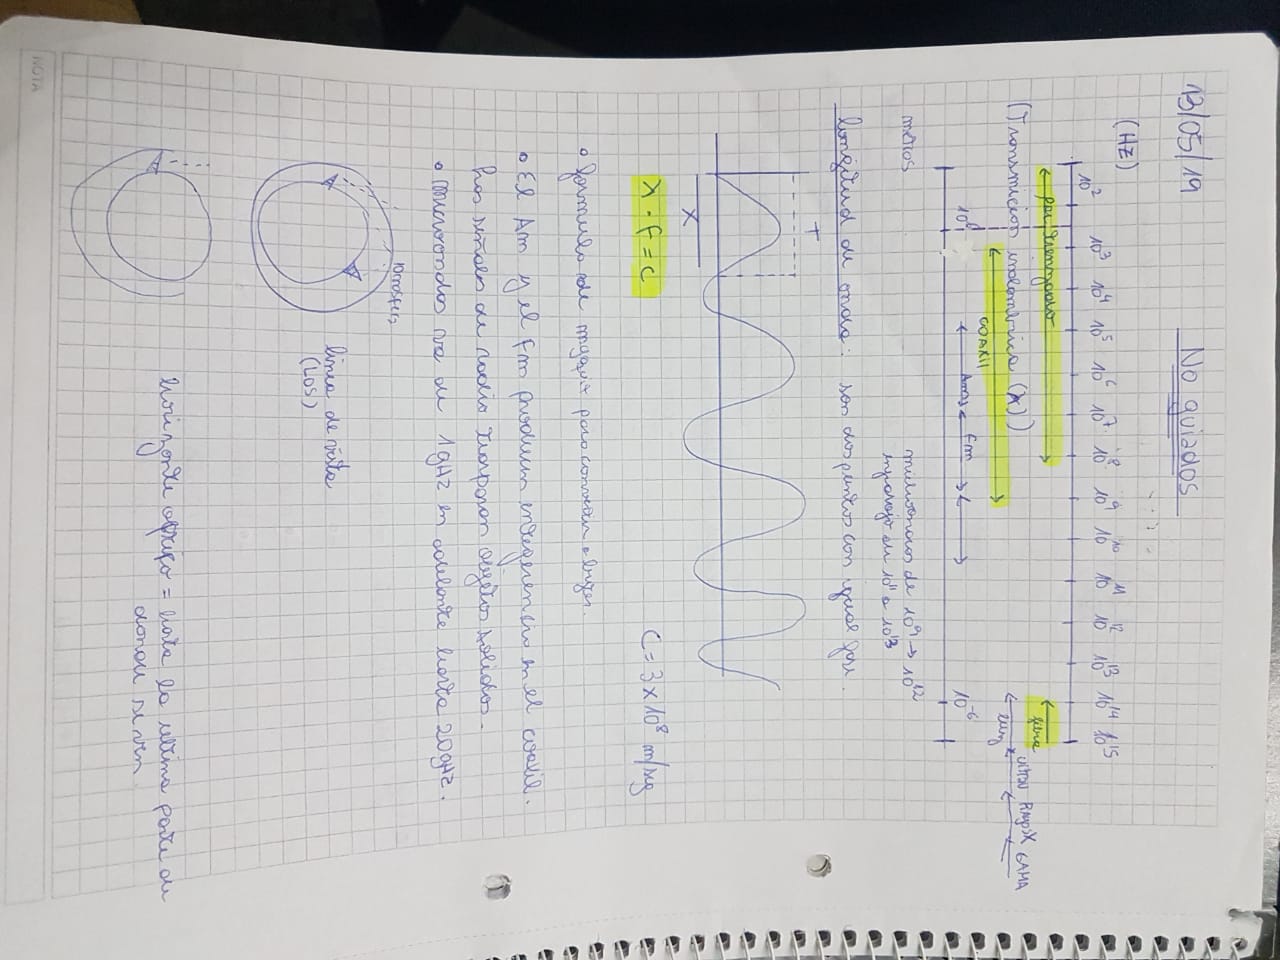 13/05/19
No guiados
(HZ)
10² 10³ 10⁴ 10⁵ 10⁶ 10⁷ 10⁸ 10⁹ 10¹⁰ 10¹¹ 10¹² 10¹³ 10¹⁴ 10¹⁵
par trenzado
fibra
(Transmicion inalambrica (λ))
luz ultrav RAyosX GAMA
COAXIL
Am Fm
10⁰ 10⁻⁶
metros
microondas de 10⁹ → 10¹²
infrarojo de 10¹¹ a 10¹³
longitud de onda: son dos puntos con igual fase.
T
λ
λ . f = c
C = 3 x 10⁸ m/seg
formula de para
El Am y el Fm producen interferencia en el coaxil.
Las señales de radio traspasan objetos solidos.
microondas va de 1gHZ en adelante hasta 20gHZ.
ionosfera
linea de vista
(LOS)
horizonte = hasta la ultima parte de
donde se ven
NOTA